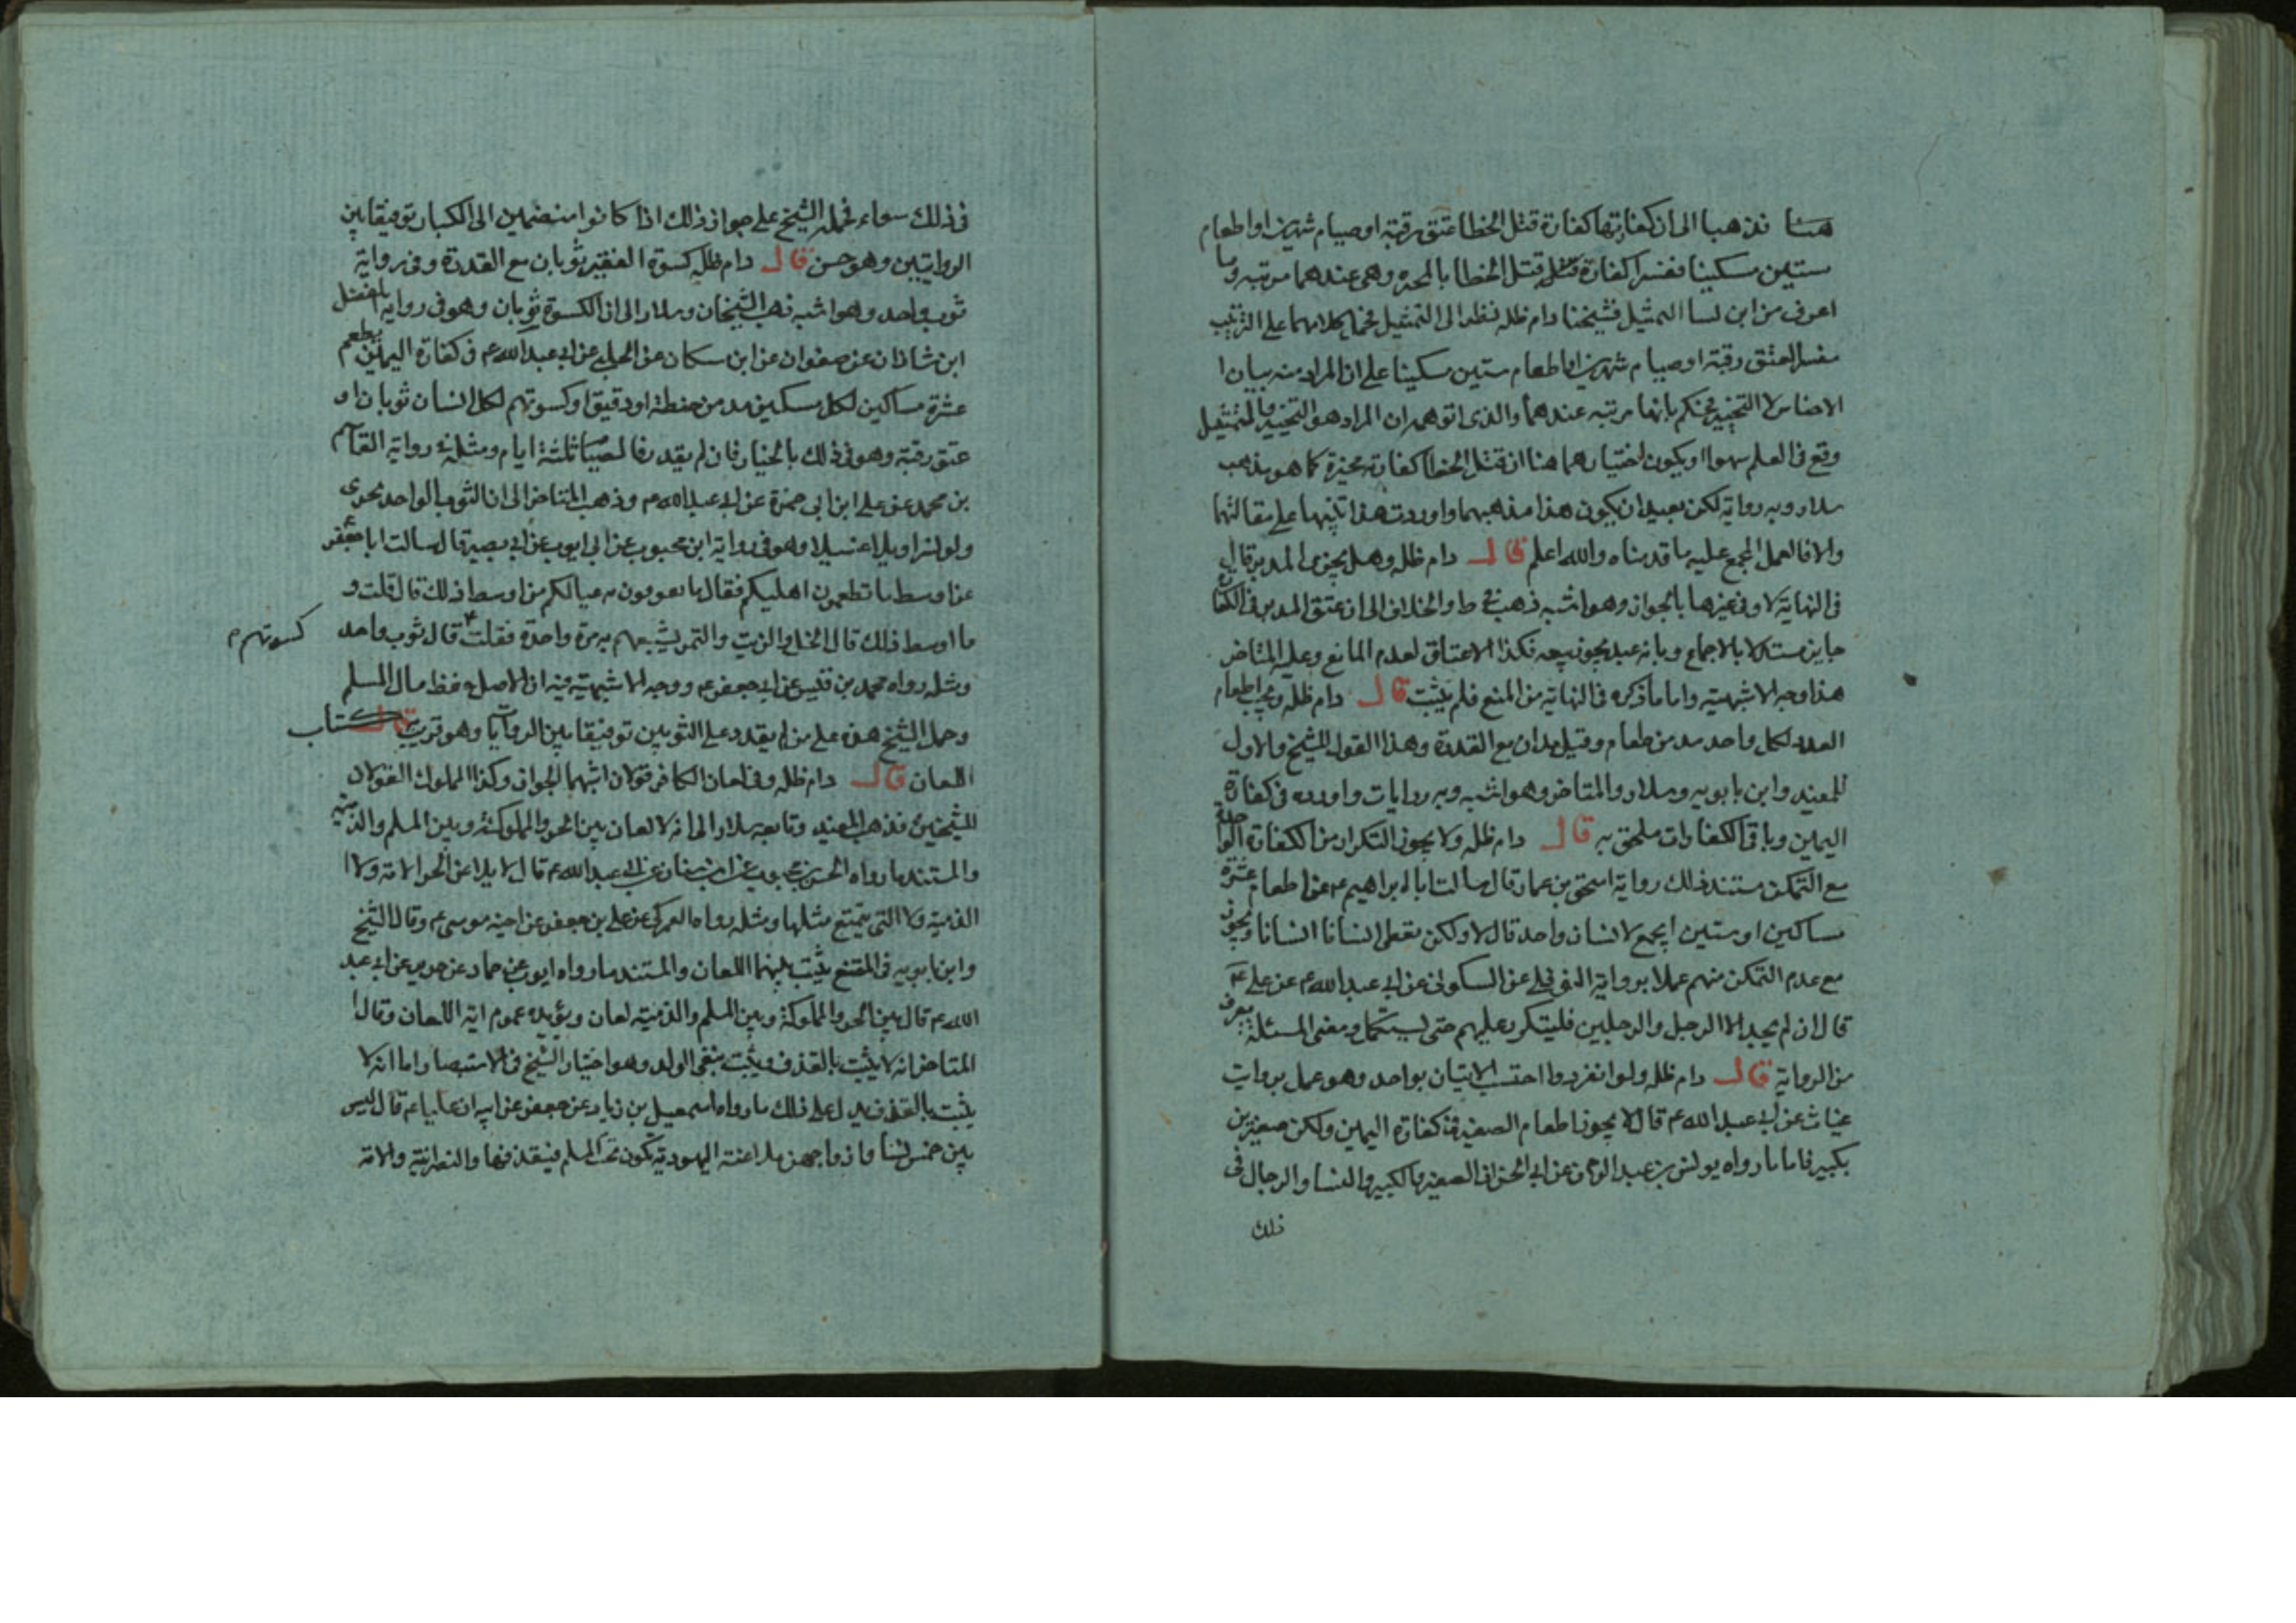 هنا فذهبا الى ان كفارتها كفارة قتل الخطا عتق رقبة او صيام شهرين او اطعام
ستين مسكينا ففسرا كفارة قتل الخطا بالمخيرة وهى عندهما مرتبة وما
اعرف من اين لنا التمثيل فشيخنا دام ظله نظر الى التمثيل فحمل كلامهما على الترتيب
مفسر العتق رقبة او صيام شهرين او اطعام ستين مسكينا على ان المراد منه بيان
الاجناس لا التخيير فحكم بانها مرتبة عندهما والذى اتوهم ان المراد هو التخيير والتمثيل
وقع فى العلم سهوا او يكون اختيارهما هنا ان قتل الخطا كفارته مخيرة كما هو مذهب
سلار وبه رواية لكن بعيد ان يكون هذا مذهبهما واوردت هذا تنبيها على مقالتهما
والا فالعمل المجمع عليه ما قدمناه والله اعلم قال دام ظله وهل يجزى المدبر قال
فى النهاية لا وفى غيرها بالجواز وهو اشبه ذهب فى ط والخلاف الى ان عتق المدبر فى الكفارة
جايز مستدلا بالاجماع وبانه عبد يجوز بيعه فكذا الاعتاق لعدم المانع وعليه المتاخر
هذا وجه الاشبهية واما ما ذكره فى النهاية من المنع فلم يثبت قال دام ظله ويجب اطعام
العدد لكل واحد مد من طعام وقيل مدان مع القدرة وهذا القول للشيخ والاول
للمفيد وابن بابويه وسلار والمتاخر وهو اشبه وبه روايات واورده فى كفارة
اليمين وباقى الكفارات ملحق به قال دام ظله ولا يجوز التكرار من الكفارة الواحدة
مع التمكن مستند ذلك رواية اسحق بن عمار قال سالت ابا ابراهيم ع عن اطعام عشرة
مساكين او ستين ايجمع لانسان واحد قال لا ولكن يعطى انسانا انسانا ويجوز
مع عدم التمكن منهم عملا برواية النوفلى عن السكونى عن ابى عبد الله ع عن على ع
قال ان لم يجد الا الرجل والرجلين فليتكرر عليهم حتى يستكمل ومعنى المسئلة يعرف
من الرواية قال دام ظله ولو انفردوا احتسب الاثنان بواحد وهو عمل برواية
غياث عن ابى عبد الله ع قال لا يجوز اطعام الصغير فى كفارة اليمين ولكن صغيرين
بكبير فاما ما رواه يونس بن عبد الرحمن عن ابى الحسن ان الصغير والكبير والنسا والرجال فى
ذلك
فى ذلك سواء فحمله الشيخ على جواز ذلك اذا كانوا منضمين الى الكبار توفيقا بين
الروايتين وهو حسن قال دام ظله كسوة الفقير ثوبان مع القدرة وفى رواية
ثوب واحد وهو اشبه ذهب الشيخان وسلار الى ان الكسوة ثوبان وهو فى رواية الفضل
ابن شاذان عن صفوان عن ابن سكان عن الحلبى عن ابى عبد الله ع فى كفارة اليمين يطعم
عشرة مساكين لكل مسكين مد من حنطة او دقيق او كسوتهم لكل انسان ثوبان او
عتق رقبة وهو فى ذلك بالخيار فان لم يقدر فالصيام ثلثة ايام ومثله فى رواية القاسم
بن محمد عن على ابن ابى حمزة عن ابى عبد الله ع وذهب المتاخر الى ان الثوب الواحد يجزى
ولو ازارا وبلا غسيلا وهو فى رواية ابن محبوب عن ابى ايوب عن ابى بصير قال سالت ابا جعفر
عن اوسط ما تطعمون اهليكم فقال ما تعولون به عيالكم من اوسط ذلك قال قلت و
ما اوسط ذلك قال الخل والزيت والتمر يشبعهم به مرة واحدة فقلت قال ثوب واحد
كسوتهم م
ومثله رواه محمد بن قيس عن ابى جعفر ع ووجه الاشبهية فيه ان الاصل حفظ مال المسلم
وحمل الشيخ هذه على من لم يقدر على الثوبين توفيقا بين الروايات وهو قريب كتاب
اللعان قال دام ظله وفى لعان الكافر قولان اشبهما الجواز وكذا المملوك القولان
للشيخين فذهب المفيد وتابعه سلار الى انه لا لعان بين الحر والمملوكة وبين المسلم والذمية
والمستند ما رواه الحسن بن محبوب عن ابن سنان عن ابى عبد الله ع قال لا يلاعن الحر الامة ولا
الذمية ولا التى يتمتع مثلها ومثله رواه العمركى عن على بن جعفر عن اخيه موسى ع وقال الشيخ
وابن بابويه فى المقنع يثبت بينهما اللعان والمستند ما رواه ايوب عن حماد عن حريز عن ابى عبد
الله ع قال بين الحر والمملوكة وبين المسلم والذمية لعان ويؤيده عموم اية اللعان وقال
المتاخر انه لا يثبت بالقذف ويثبت بنفى الولد وهو اختيار الشيخ فى الاستبصار اما انه لا
يثبت بالقذف يدل على ذلك ما رواه اسمعيل بن زياد عن جعفر عن ابيه ان عليا ع قال ليس
بين خمس نسا وازواجهن ملاعنة اليهودية تكون تحت المسلم فيقذفها والنصرانية والامة